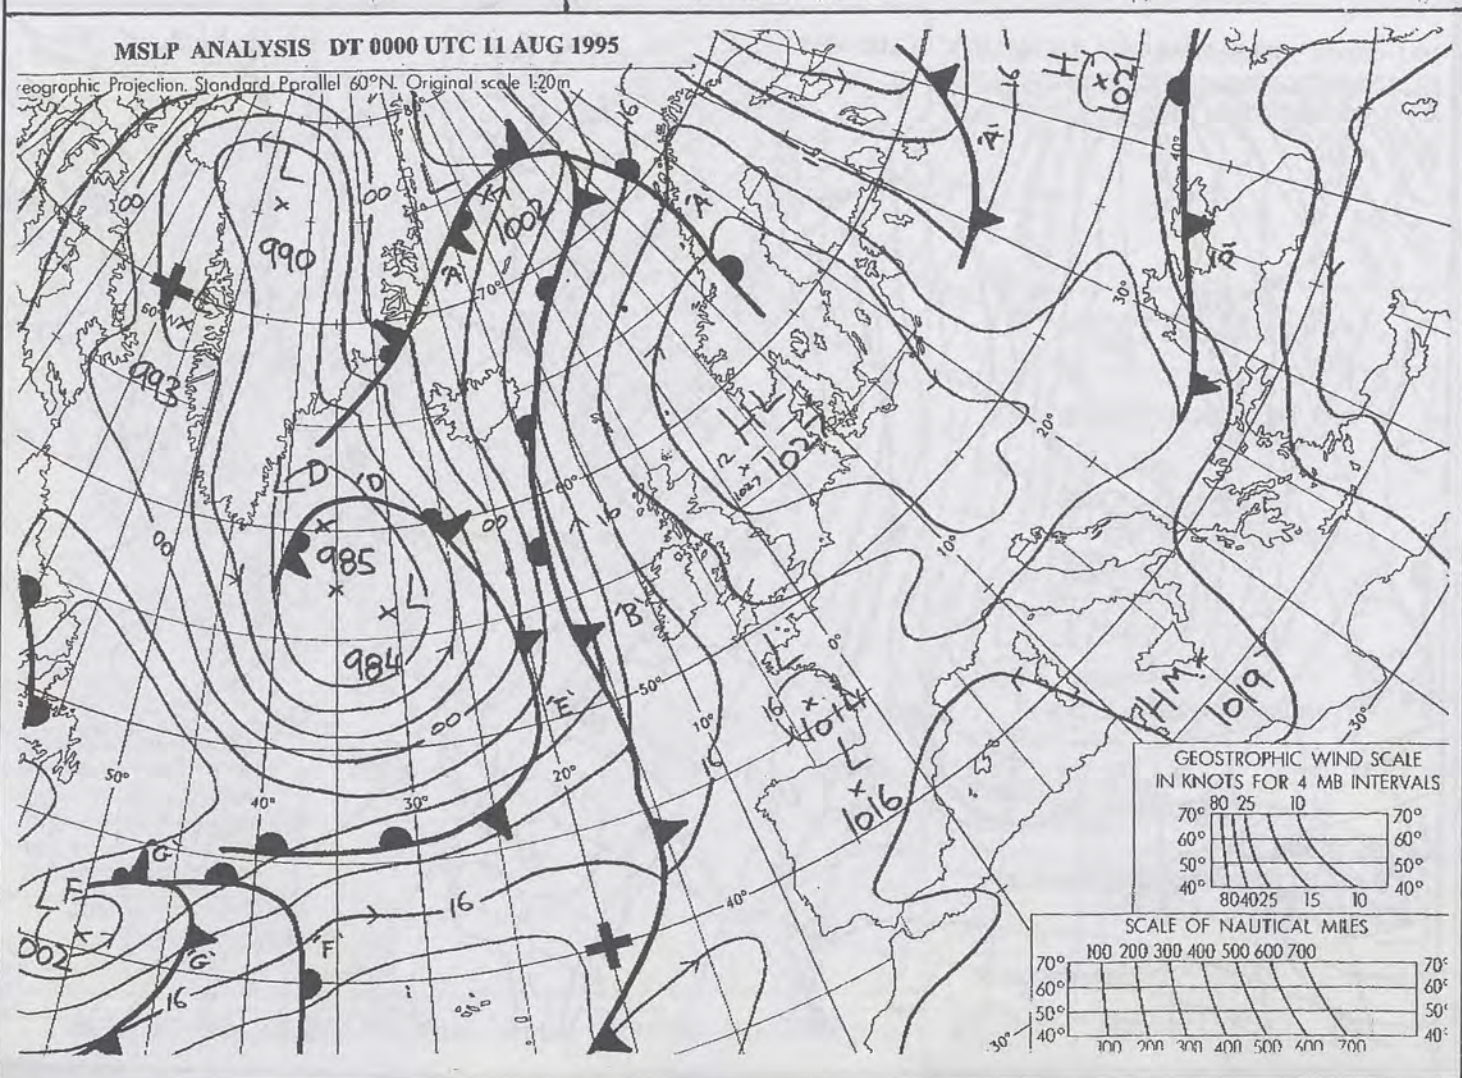 MSLP ANALYSIS DT 0000 UTC 11 AUG 1995
eographic Projection. Standard Parallel 60°N. Original scale 1:20m
16
16
H
021
'A'
40°
L
990
00
00
1002
'A'
'A'
70°
30°
60°N
993
H
1027
1027
20°
LD
'D'
985
L
984
00
00
60°
16
10°
'B'
0°
L
16
1014
L
1016
'E'
50°
10°
16
HM
1019
30°
00
50°
40°
30°
20°
40°
'G'
L F
002
'G'
'F'
16
16
30°
GEOSTROPHIC WIND SCALE
IN KNOTS FOR 4 MB INTERVALS
80 25 10
70° 70°
60° 60°
50° 50°
40° 40°
80 40 25 15 10
SCALE OF NAUTICAL MILES
100 200 300 400 500 600 700
70° 70°
60° 60°
50° 50°
40° 40°
100 200 300 400 500 600 700